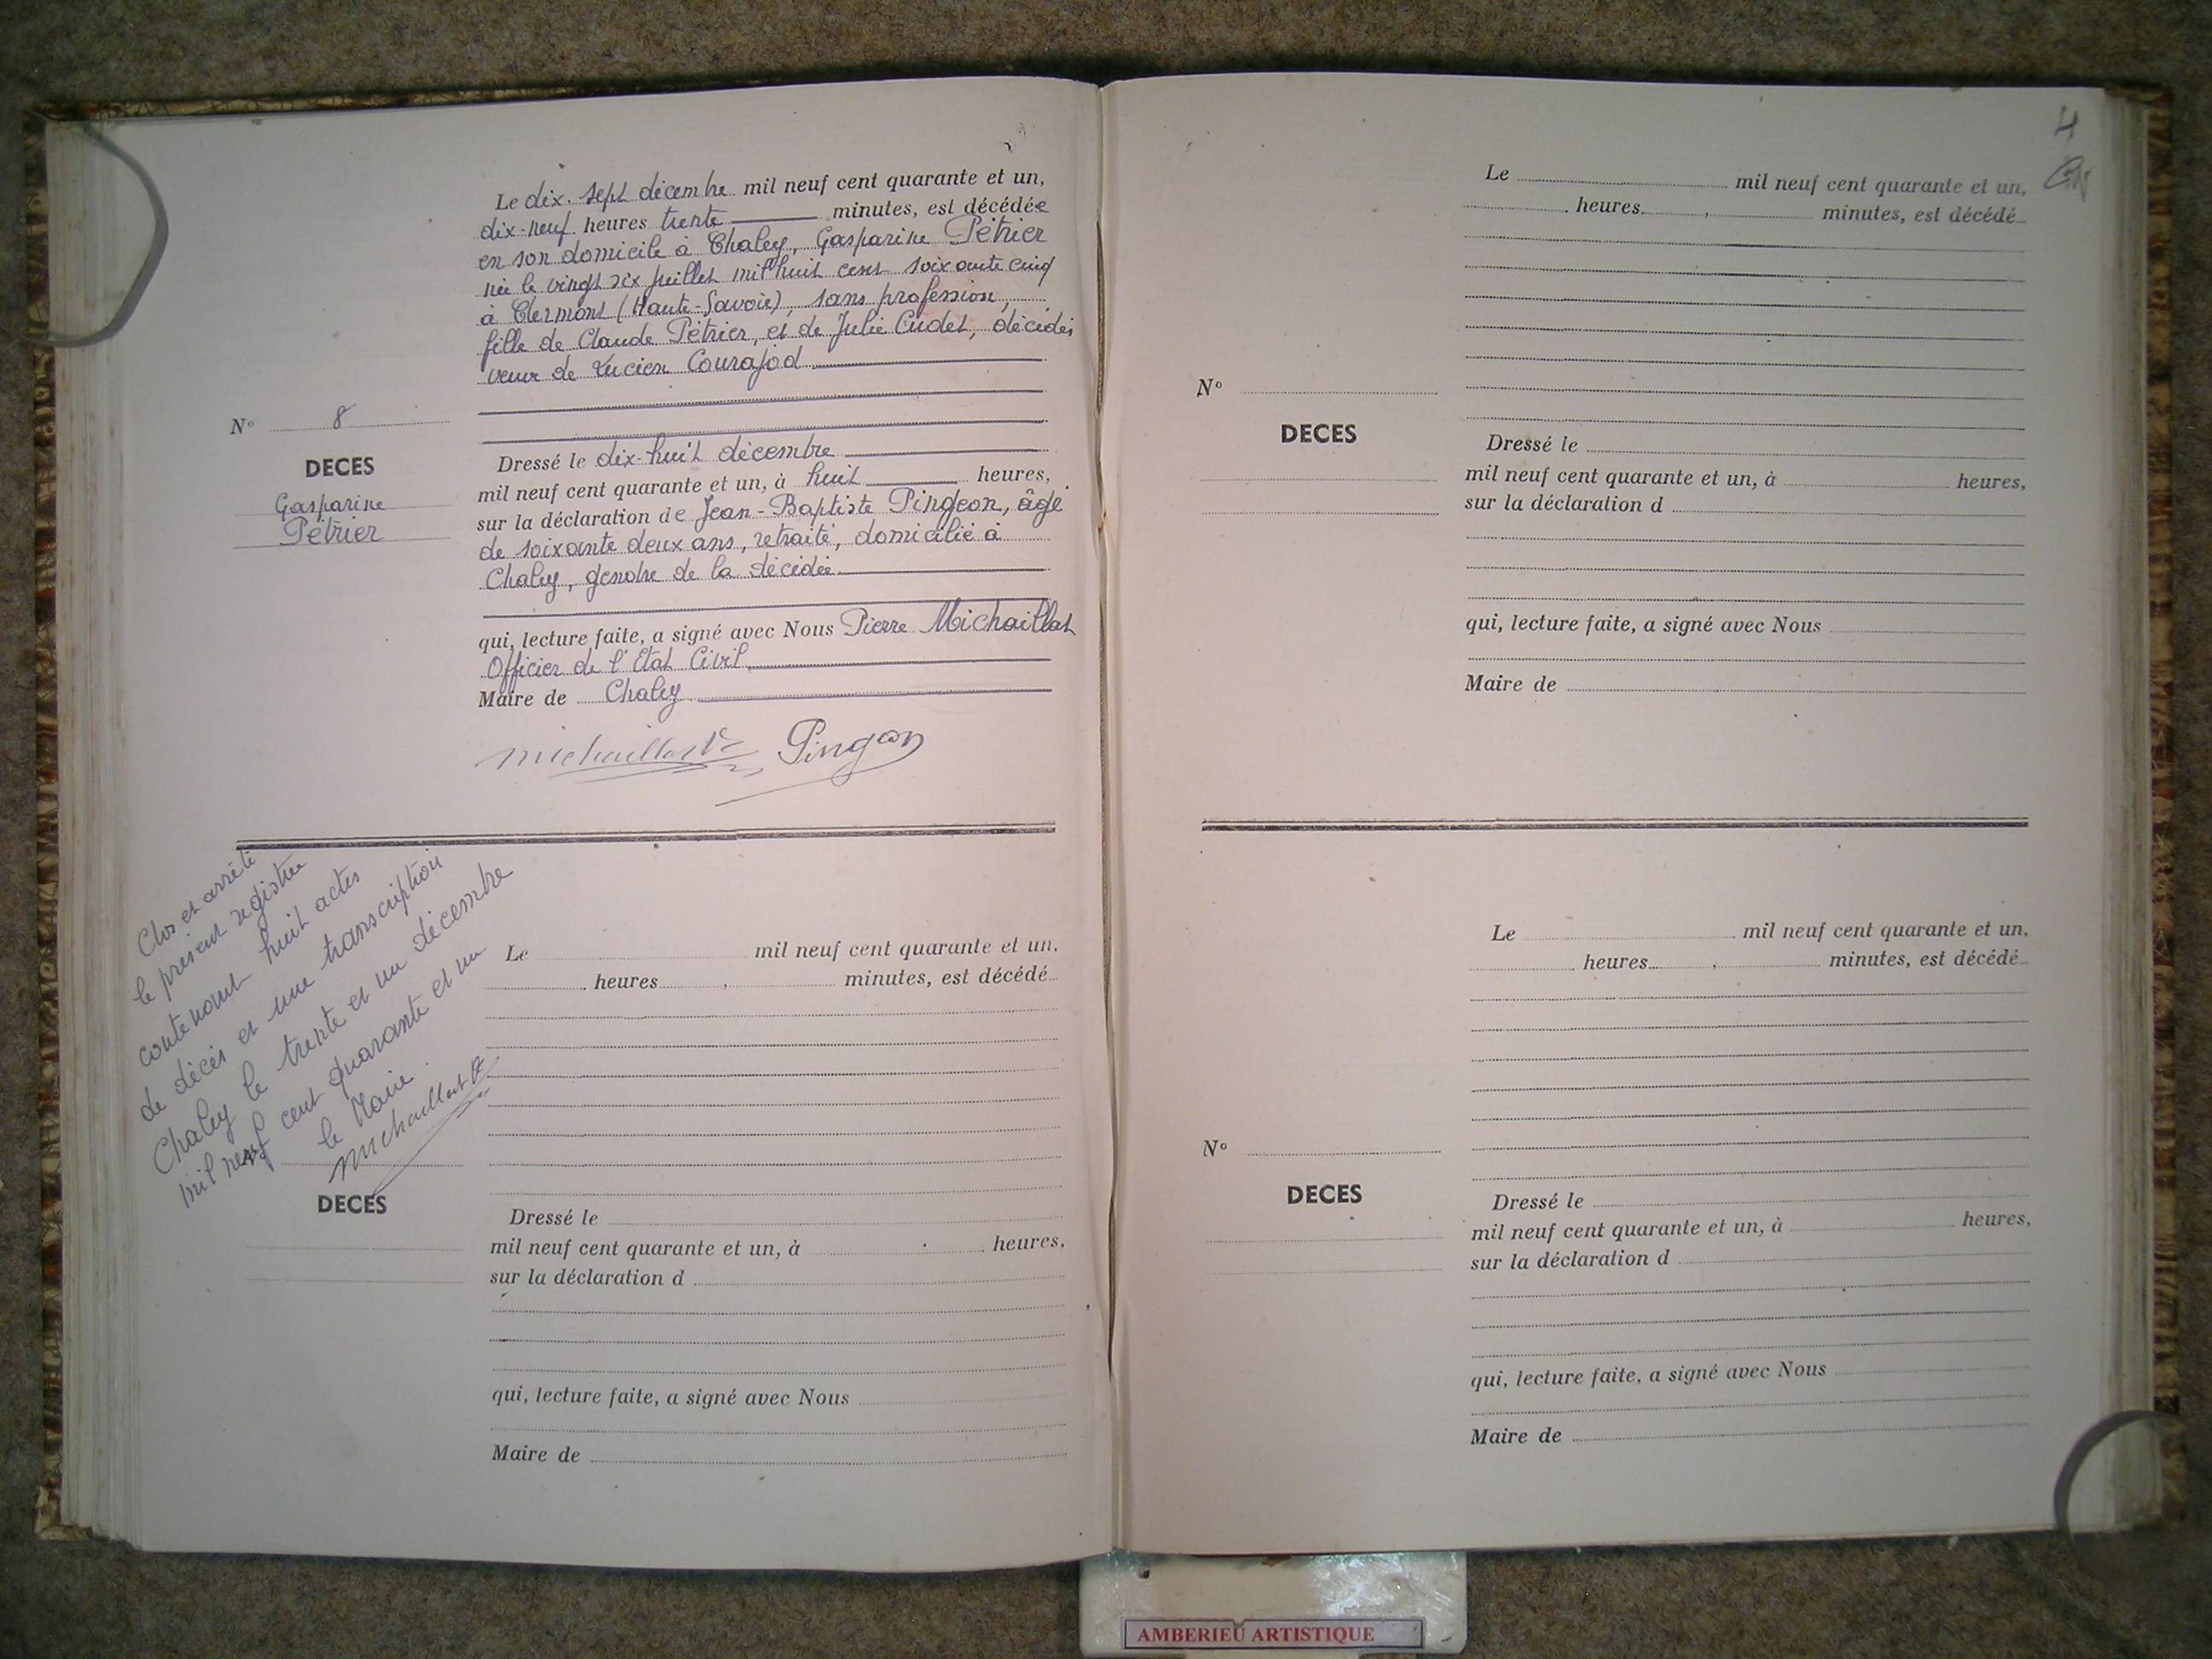 Le dix-sept décembre mil neuf cent quarante et un,
dix-neuf heures trente minutes, est décédée
en son domicile à Chaley, Gasparine Pétrier
née le vingt six juillet mil huit cent soixante cinq
à Clermont (Haute-Savoie), sans profession,
fille de Claude Pétrier, et de Julie Cudet, décédés
veuve de Lucien Courajod
N° 8
DECES
Gasparine
Pétrier
Dressé le dix-huit décembre
mil neuf cent quarante et un, à huit heures,
sur la déclaration de Jean-Baptiste Pingeon, âgé
de soixante deux ans, retraité, domicilié à
Chaley, gendre de la décédée
qui, lecture faite, a signé avec Nous Pierre Michaillat
Officier de l'Etat Civil
Maire de Chaley
Michaillat Pingeon
Clos et arrêté
le présent registre
contenant huit actes
de décès et une transcription
Chaley le trente et un décembre
mil neuf cent quarante et un
le Maire
Michaillat
DECES
Le mil neuf cent quarante et un,
heures, minutes, est décédé
Dressé le
mil neuf cent quarante et un, à heures,
sur la déclaration d
qui, lecture faite, a signé avec Nous
Maire de
4
Le mil neuf cent quarante et un,
heures, minutes, est décédé
N°
DECES
Dressé le
mil neuf cent quarante et un, à heures,
sur la déclaration d
qui, lecture faite, a signé avec Nous
Maire de
Le mil neuf cent quarante et un,
heures, minutes, est décédé
N°
DECES
Dressé le
mil neuf cent quarante et un, à heures,
sur la déclaration d
qui, lecture faite, a signé avec Nous
Maire de
AMBERIEU ARTISTIQUE